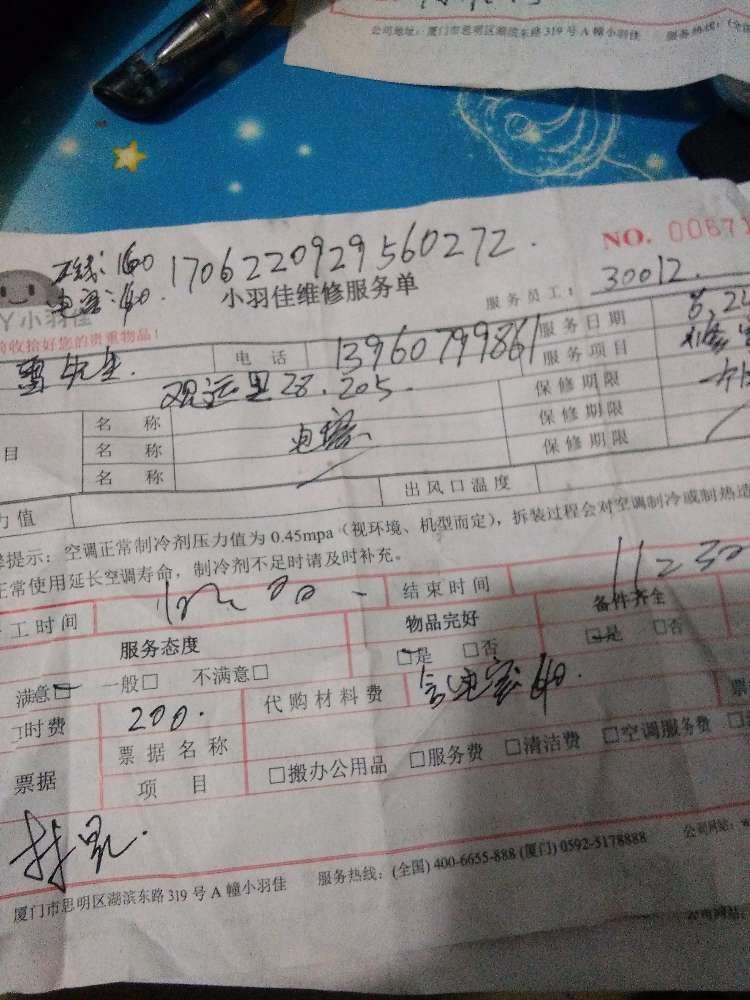 公司地址：厦门市思明区湖滨东路319号A幢小羽佳 服务热线：(全国
在线：160 1706220929560272. NO. 0067
电容：40. 小羽佳维修服务单 服务员工： 30012.
小羽佳
收拾好您的贵重物品！
先生. 电话 13960799861 服务日期
观远里28.205. 服务项目
名称 电容 保修期限
名称 保修期限
名称 保修期限
目
力值 出风口温度
提示：空调正常制冷剂压力值为0.45mpa（视环境、机型而定），拆装过程会对空调制冷或制热造
正常使用延长空调寿命，制冷剂不足时请及时补充。
工时间 结束时间 11:30
服务态度 物品完好 备件齐全
满意□ 一般□ 不满意□ □是 □否 □是 □否
时费 200. 代购材料费 含电容40. 票
票据 票据名称 □搬办公用品 □服务费 □清洁费 □空调服务费
项目
厦门市思明区湖滨东路319号A幢小羽佳 服务热线：(全国) 400-6655-888 (厦门) 0592-5178888 公司网站：w
公司网站：